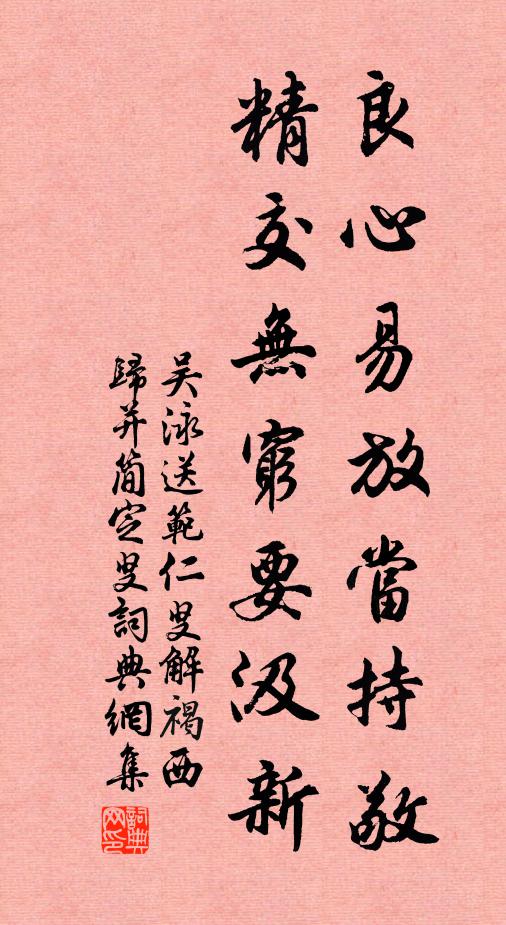 良心易放當持敬
精交無窮要汲新
吴泳送範仁叟解褐西
歸并简定叟詞典網集
詞典
网印